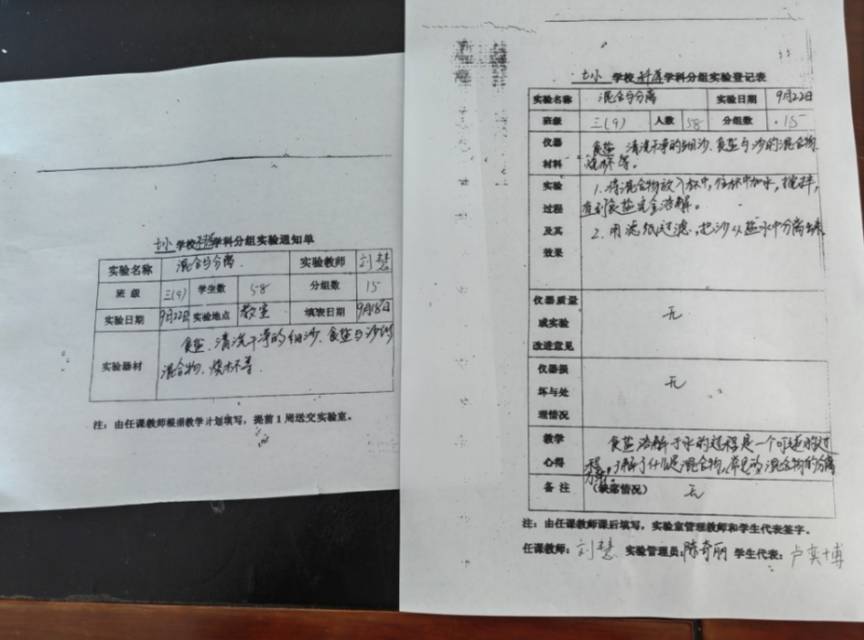 土小 学校科学学科分组实验通知单
实验名称 混合与分离 实验教师 刘慧
班 级 三(9) 学生数 58 分组数 15
实验日期 9月22日 实验地点 教室 填表日期 9月18日
实验器材 食盐、清洗干净的细沙、食盐与沙的
混合物、烧杯等
注：由任课教师根据教学计划填写，提前1周送交实验室。
土小 学校科学学科分组实验登记表
实验名称 混合与分离 实验日期 9月22日
班级 三(9) 人数 58 分组数 15
仪器材料 食盐、清洗干净的细沙、食盐与沙的混合物、
烧杯等。
实验过程及其效果 1、将混合物放入杯中，往杯中加水，搅拌，
直到食盐完全溶解。
2、用滤纸过滤，把沙从盐水中分离出来
仪器质量或实验改进意见 无
仪器损坏与处理情况 无
教学心得 食盐溶解于水的过程是一个可逆的过
程，了解了什么是混合物，常见的混合物的分离
方法。
备 注 (缺席情况) 无
注：由任课教师课后填写，实验室管理教师和学生代表签字。
任课教师：刘慧 实验管理员：陈奇丽 学生代表：卢奕博